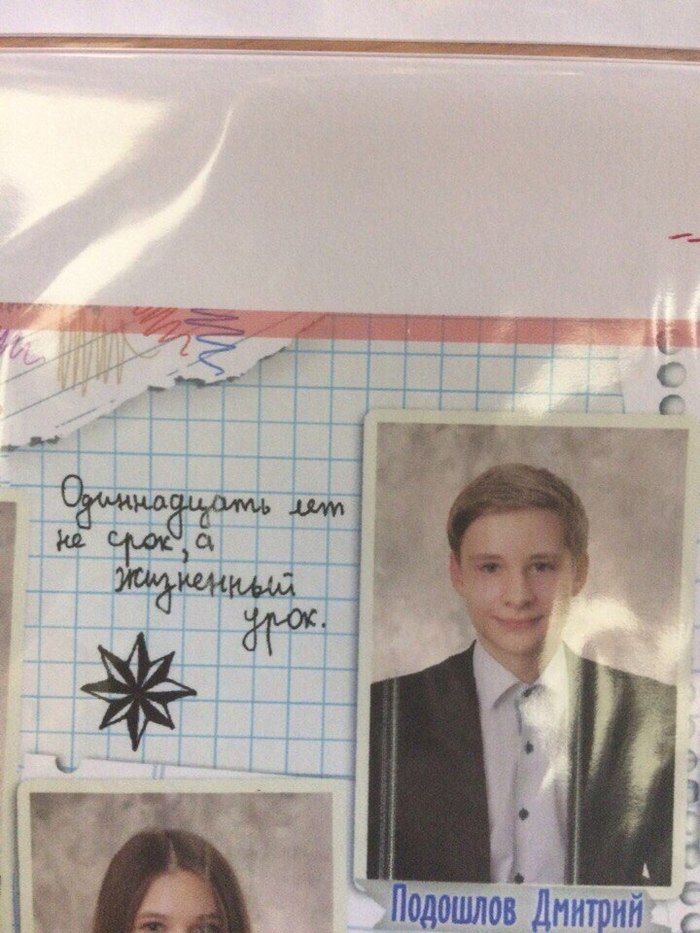 Одиннадцать лет
не срок, а
жизненный
урок.
Подошлов Дмитрий